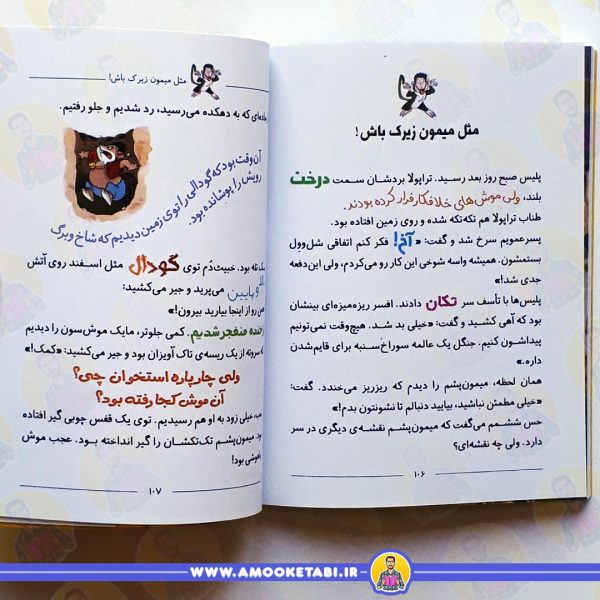 مثل میمون زیرک باش!
پلیس صبح روز بعد رسید. تراپولا بردشان سمت درخت
بلند، ولی موش‌های خلافکار فرار کرده بودند.
طناب تراپولا هم تکه‌تکه شده و روی زمین افتاده بود.
پسرعمویم سرخ شد و گفت: «آخ! فکر کنم اتفاقی شل‌وول
بستمشون. همیشه واسه شوخی این کار رو می‌کردم، ولی این‌دفعه
جدی شد!»
پلیس‌ها با تأسف سر تکان دادند. افسر ریزه‌میزه‌ای بینشان
بود که آهی کشید و گفت: «خیلی بد شد. هیچ‌وقت نمی‌تونیم
پیداشون کنیم. جنگل یک عالمه سوراخ‌سنبه برای قایم‌شدن
داره.»
همان لحظه، میمون‌پشم را دیدم که ریزریز می‌خندد. گفت:
«خیلی مطمئن نباشید، بیایید دنبالم تا نشونتون بدم!»
حس ششمم می‌گفت که میمون‌پشم نقشه‌ی دیگری در سر
دارد. ولی چه نقشه‌ای؟
۱۰۶
مثل میمون زیرک باش!
که به دهکده می‌رسید، رد شدیم و جلو رفتیم.
آن وقت بود که گودالی را توی زمین دیدیم که شاخ و برگ
رویش را پوشانده بود.
تله بود. خبیث‌دُم توی گودال مثل اسفند روی آتش
و پایین می‌پرید و جیر می‌کشید:
رو از اینجا بیارید بیرون!»
منفجر شدیم. کمی جلوتر، مایک موش‌سون را دیدیم
سروته از یک رسه‌ی تاک آویزان بود و جیر می‌کشید: «کمک!»
ولی چارپاره استخوان چی؟
آن موش کجا رفته بود؟
خیلی زود به او هم رسیدیم. توی یک قفس چوبی گیر افتاده
بود. میمون‌پشم تک‌تکشان را گیر انداخته بود. عجب موش
بود!
۱۰۷
WWW.AMOOKETABI.IR